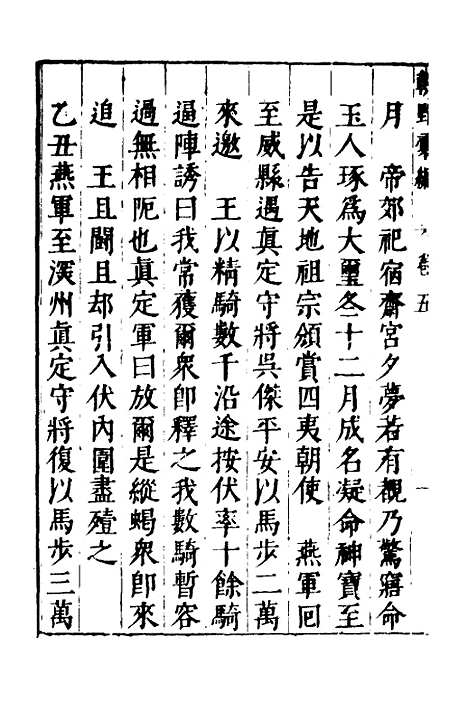 月　帝郊祀宿齋宮夕夢若有覩乃驚寤命
玉人琢爲大璽冬十二月成名凝命神寶至
是以告天地祖宗頒賞四夷朝使　燕軍回
至威縣遇眞定守將吳傑平安以馬步二萬
來邀　王以精騎數千沿途按伏率十餘騎
逼陣誘曰我常獲爾衆卽釋之我數騎暫容
過無相阨也眞定軍曰放爾是縱蝎衆卽來
追　王且鬪且却引入伏內圍盡殪之
乙丑燕軍至滹州眞定守將復以馬步三萬
卷五